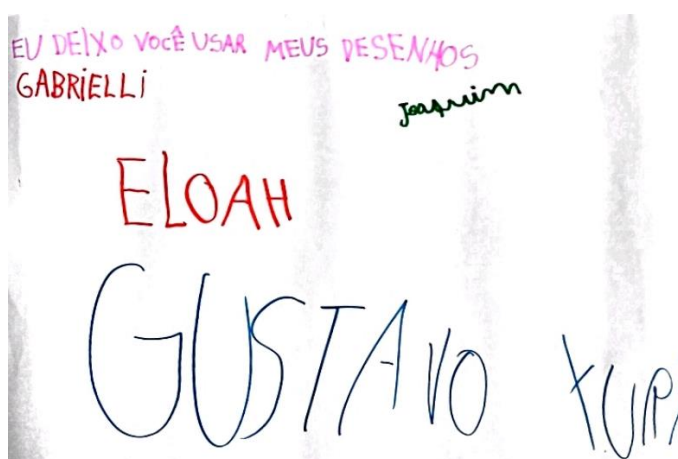 EU DEIXO VOCÊ USAR MEUS DESENHOS
GABRIELLI
Joaquim
ELOAH
GUSTAVO